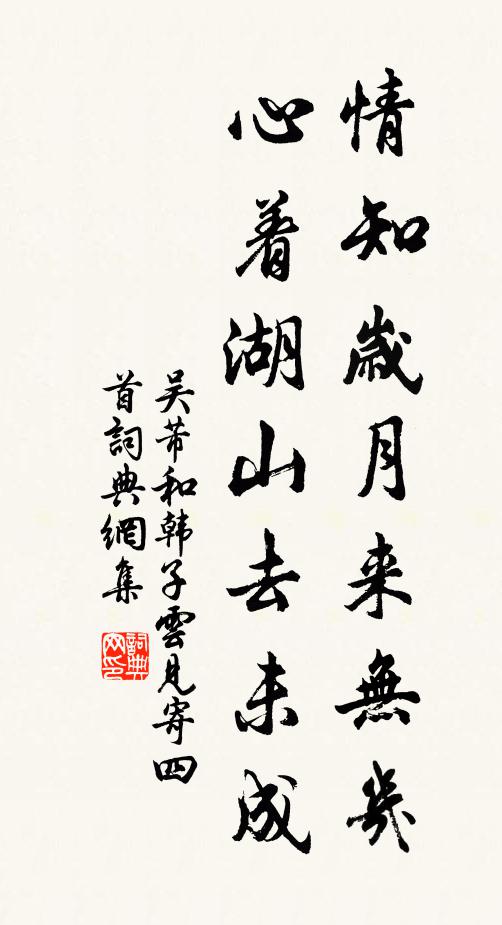 情知歲月来無幾
心着湖山去未成
吴芾和韩子雲見寄四
首詞典網集
詞典
网印